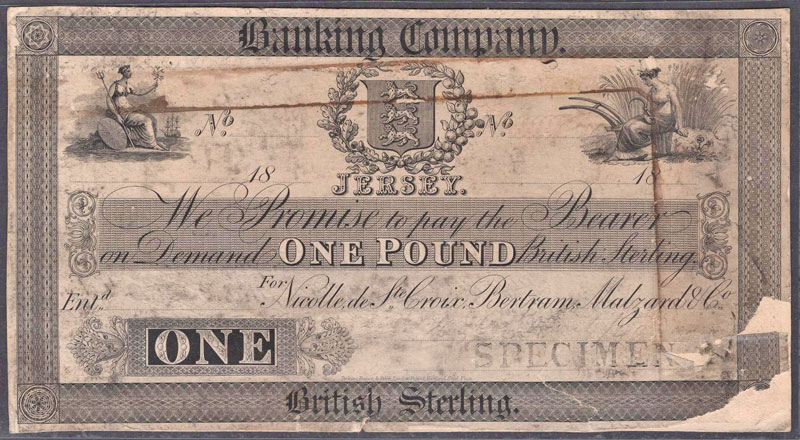 Banking Company.
No. No.
18 18
JERSEY.
We Promise to pay the Bearer
on Demand ONE POUND British Sterling.
For Nicolle, de Ste Croix, Bertram, Malzard & Co.
Entd.
ONE
SPECIMEN
British Sterling.